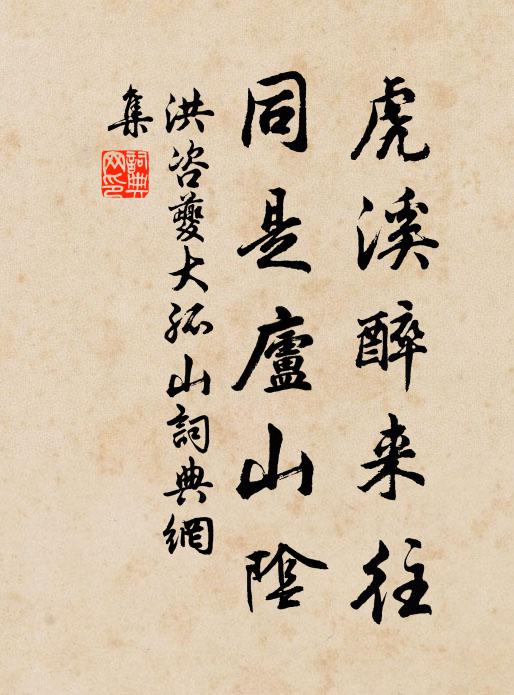 虎溪醉来往
同是廬山陰
洪咨夔大孤山詞典網
集
詞典網印